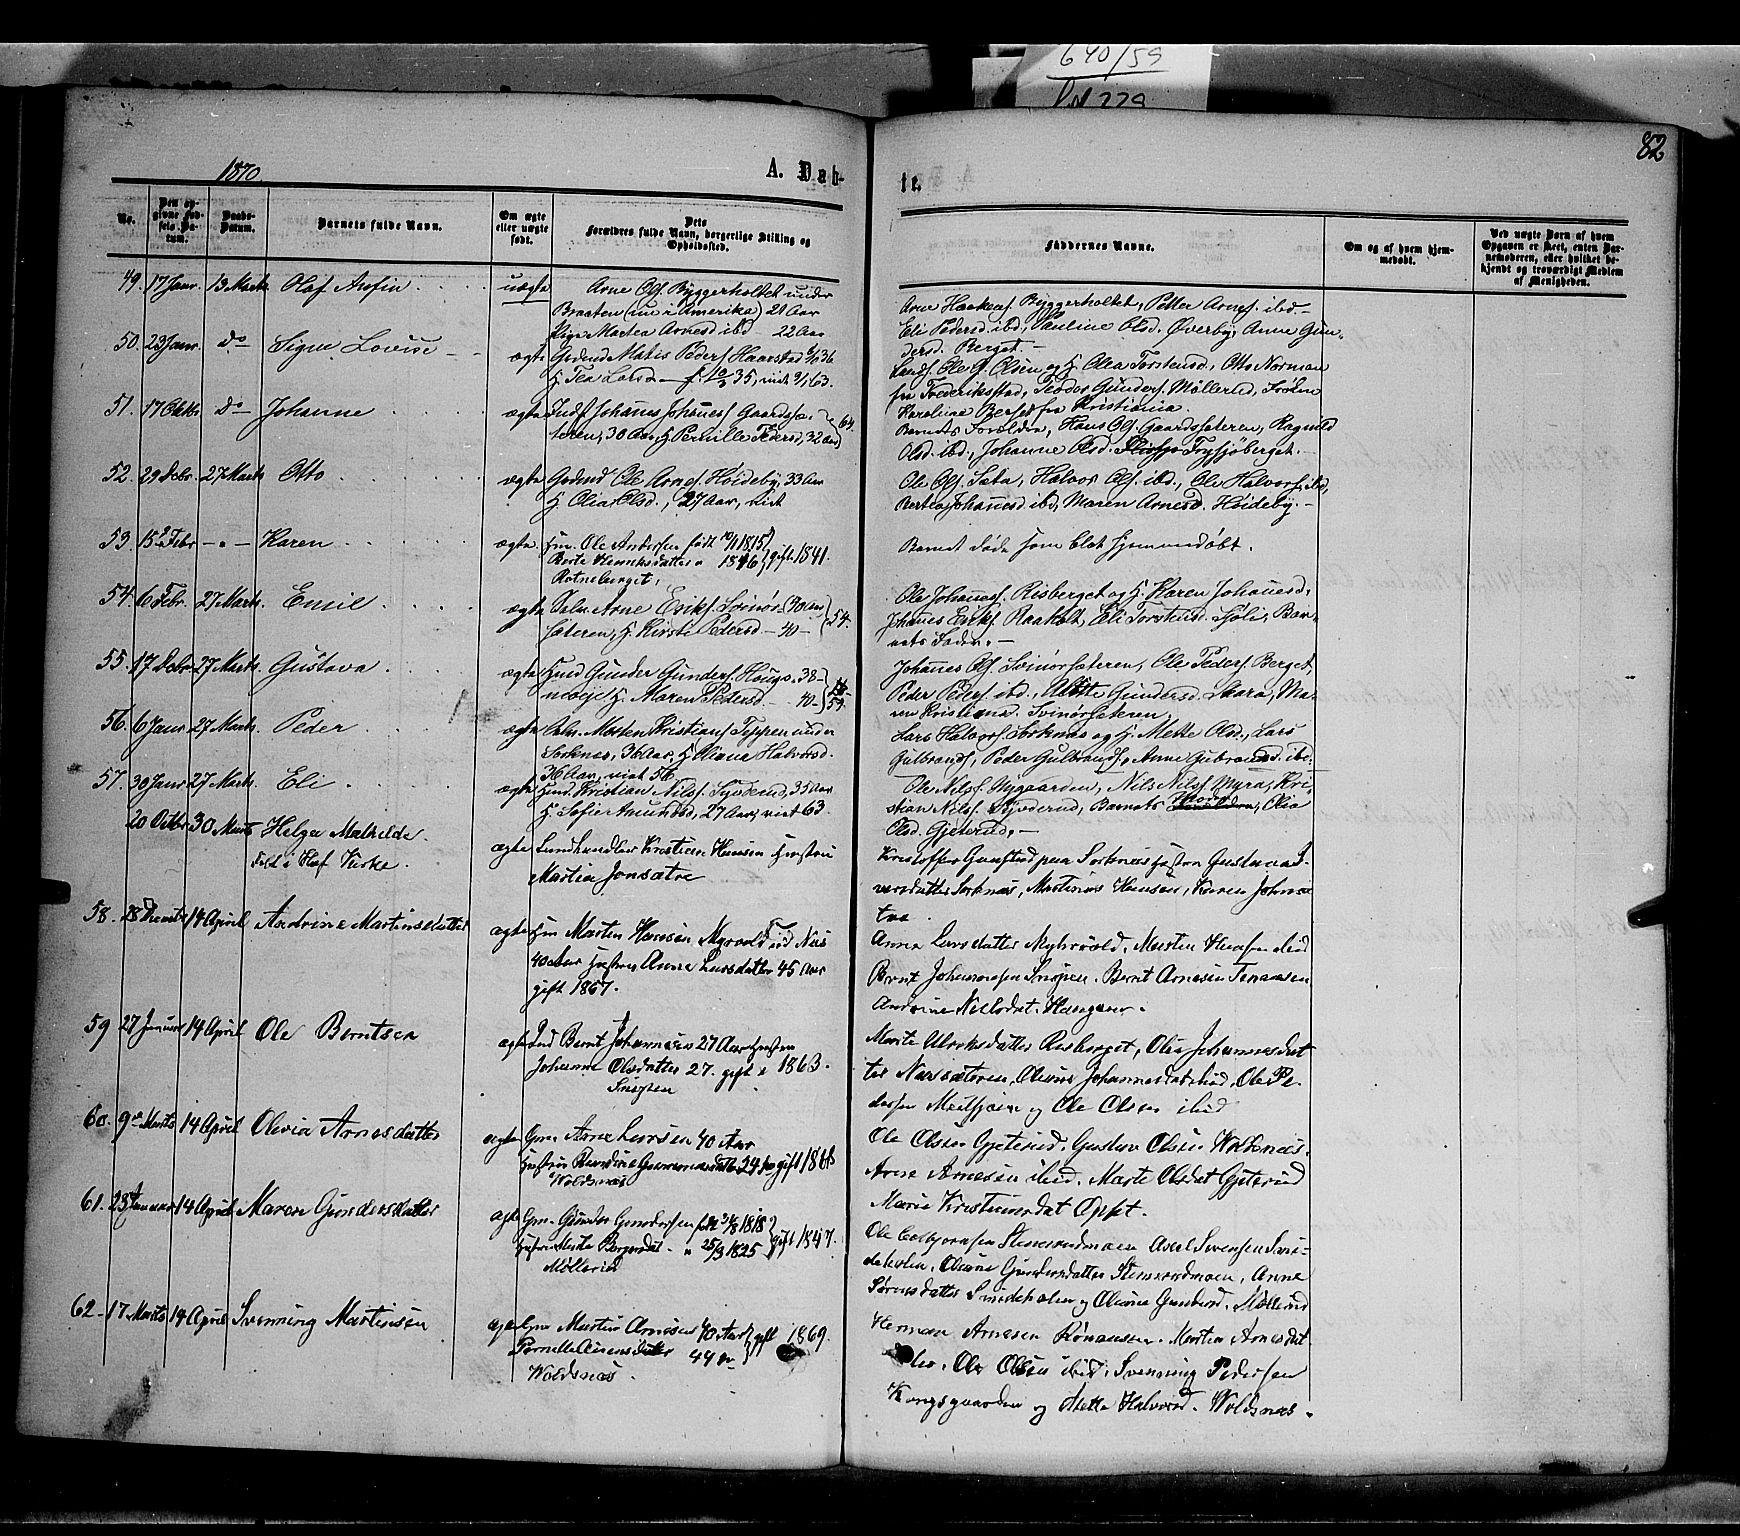 640/59
229
82
1870.
A. Døb-
te.
No.
Den op-
givne Fød-
sels-Da-
tum.
Daabs-
Datum.
Barnets fulde Navn.
Om ægte
eller uægte
født.
Forældres fulde Navn, borgerlige Stilling og
Opholdssted.
Faddernes Navne.
Om og af hvem hjem-
medøbt.
Ved uægte Børn af hvem
Opgaven er skeet, enten Bar-
nemoderen, eller hvilket be-
kjendt og troværdigt Medlem
af Menigheden.
49. 17 Janr. 13 Marts Olaf Arfin uægte Arne Ols. Byggerholtet under
Braaten (nu i Amerika) 21 Aar
Pige Martea Arnesd ibd - 22 Aar
Arne Haakens. Byggerholtet, Petter Arnes. ibd.
Eli Pedersd ibd, Pauline Olsd. Øverby, Anne Gun-
dersd. Berget.
50. 23 Janr. do Signe Lovise ægte Gaardmd Mathis Peders. Haarstad
H Tea Larsd 35, viet 63.
Landh. Ole G. Olsen og H. Olea Torstensd, Otto Norman
fra Frederiksstad, Teodor Gunders. Møllerud, Frøken
Karoline Berset fra Kristiania.
51. 17 Oktb. do Johanne ægte Indst Johanes Johaness. Gaardssæ-
teren, 30 Aar H Pernille Pedersd, 32 Aar 64.
Barnets Forældre, Hans Ols. Gaardsæteren, Ragnild
Olsd. ibd., Johanne Olsd. Frysjøberget.
52. 29 Debr. 27 Marts Otto ægte Gaardmd Ole Arnes. Høideby, 33 Aar
H. Olia Olsd., 27 Aar, viet
Ole Ols. Sæta, Halvor Ols. ibd, Ole Halvors. ibd,
Bertea Johanesd ibd, Maren Arnesd. Høideby.
53. 15de Febr - " - Karen ægte Hm. Ole Andersen født 1815
Berte Henriksdatter " 1816 gift 1841.
Rotneberget,
Barnet døde som blot hjemmedøbt.
54. 6 Febr. 27 Marts. Emil ægte Selv. Arne Eriks. Svinør- 30 Aar
sæteren, H. Kirsti Pedersd - 40 - 54.
Ole Johaness. Risberget og H. Karen Johanesd,
Johanes Eriks. Raaholt, Eli Torstensd. Sjøli, Bar-
nets Fader.
55. 17 Debr 27 Marts. Gustava ægte Husmd Gunder Gunders. Hougs- 38 -
H. Maren Pedersd - 40 - 54.
Johanes Ols Svinørsæteren, Ole Peders. Berget,
Peder Peders. ibd, Gundersd. Skara, Ma-
ren Kristiansd. Svinørsæteren.
56. 6 Janr 27 Marts. Peder ægte Selv. Morten Kristians Teppen under
Sorknes, 36 Aar, H. Oliana Halvorsd.
36 Aar, viet 56.
Lars Halvors. Sorknes og H. Mette Olsd., Lars
Gulbrands, Peder Gulbrands, Anne Gulbrandsd. ibd.
57. 30 Janr 27 Marts. Eli ægte Husmd. Kristian Nilss. Syverud, 35 Aar
H. Sofie Amundsd, 27 Aar, viet 63.
Ole Nilss. Nygaarden, Nils Nilss Myra, Kri-
stian Nilss. Syverud, Barnets Moder, Olia
Olsd. Gjeterud.
20 Octbr 30 Marts Helga Mathilde
Født i Hof Kirke.
ægte Landhandler Kristian Hansen Hustru
Martia Jonsætre
Kristoffer Gunstad paa Sorknæs Hustru Gustava I-
versdatter Sorknæs, Martinius Hansen, Karen Johnsæ
tra.
58. 28 Decembr 14 April Andrine Martinsdatter ægte Hm Martin Hansen Myrvold Næs
40 Aar Hustru Anne Larsdatter 45 Aar
gift 1867.
Anna Larsdatter Myhrvold. Martin Hansen ibid
Bernt Johannesen Snepen. Bernt Arnesen Tenaasen
Andrine Nilsdat. Haugen.
59 27 Januar 14 April Ole Berntsen ægte Ind Bernt Johannesen 27 Aar Hustru
Johanne Olsdatter 27. gift 1863.
Marte Ulriksdatter Risberget, Olia Johannesdat
ter Næssæteren, Oliane Johannesdat ibid, Ole Pe-
dersen og Ole Olsen ibid
60. 9de Marts 14 April Olivia Arnesdatter ægte Gm. Arne Larsen 40 Aar
Hustru Gunnersdatter 24 Aar gift 1868
Woldsnæs
Ole Olsen Gjeterud, Gustav Olsen Woldsnæs.
Arne Arnesen ibid. Marte Olsdat Gjeterud
Marie Kristiansdat Opset.
61. 23 Januar 14 April Maren Gundersdatter ægte Gm. Gunder Gundersen født 3/8 1818
Hustru Marte Bersvendsdat. " 25/9 1825 gift 1847.
Møllerud
Ole Esbjørnsen Stensrudmoen Axel Svensen Smi-
deholen, Oliane Gundersdatter Stensrudmoen, Anne
Sørensdatter Smideholen og Oliane Gundersd. Møllerud
62. 17 Marts 14 April Svenning Martinsen ægte Gm Martin Arnesen 40 Aar gift 1869.
44 Aar
Woldsnæs.
Herman Arnesen Rønaasen. Martia Arnesdat
, Ole Olsen ibid, Svenning Pedersen
Kongsgaarden og Mette Halvorsd. Woldsnæs.